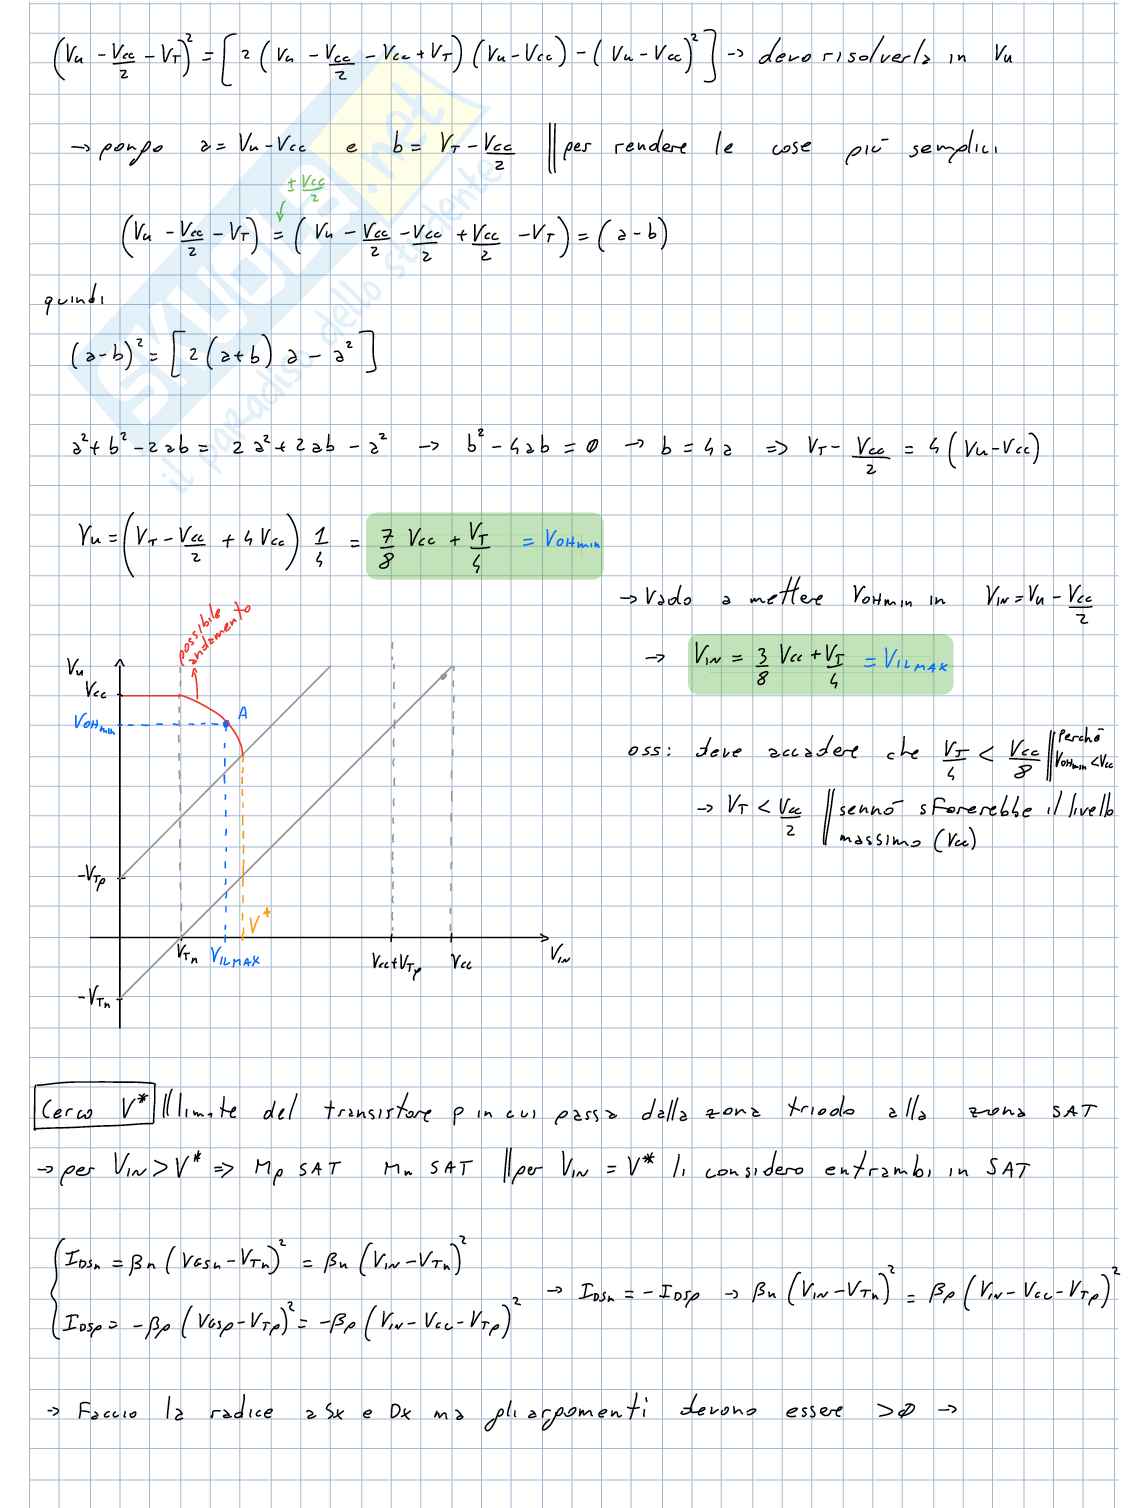 (Vu - Vcc/2 - VT)² = [2 (Vu - Vcc/2 - Vcc + VT) (Vu - Vcc) - (Vu - Vcc)²] → devo risolverla in Vu
→ pongo a = Vu - Vcc e b = VT - Vcc/2 || per rendere le cose più semplici
± Vcc/2
(Vu - Vcc/2 - VT) = (Vu - Vcc/2 - Vcc/2 + Vcc/2 - VT) = (a - b)
quindi
(a - b)² = [2 (a + b) a - a²]
a² + b² - 2ab = 2a² + 2ab - a² → b² - 4ab = 0 → b = 4a ⇒ VT - Vcc/2 = 4 (Vu - Vcc)
Vu = (VT - Vcc/2 + 4 Vcc) 1/4 = 7/8 Vcc + VT/4 = VOHmin
→ Vado a mettere VOHmin in VIN = Vu - Vcc/2
→ VIN = 3/8 Vcc + VT/4 = VILMAX
oss: deve accadere che VT/4 < Vcc/8 || Perchè VOHmin < Vcc
→ VT < Vcc/2 || sennò sforerebbe il livello
massimo (Vcc)
possibile
andamento
Vu
Vcc
VOHmin
A
-VTp
V*
VTn
VILMAX
Vcc + VTp
Vcc
VIN
-VTn
Cerco V* || limite del transistore p in cui passa dalla zona triodo alla zona SAT
→ per VIN > V* ⇒ Mp SAT Mn SAT || per VIN = V* li considero entrambi in SAT
{ IDSn = βn (VGSn - VTn)² = βn (VIN - VTn)²
IDSp = -βp (VGSp - VTp)² = -βp (VIN - Vcc - VTp)²
→ IDSn = - IDSp → βn (VIN - VTn)² = βp (VIN - Vcc - VTp)²
→ Faccio la radice a Sx e Dx ma gli argomenti devono essere > 0 →
SKUOLA.net
il paradiso dello studente